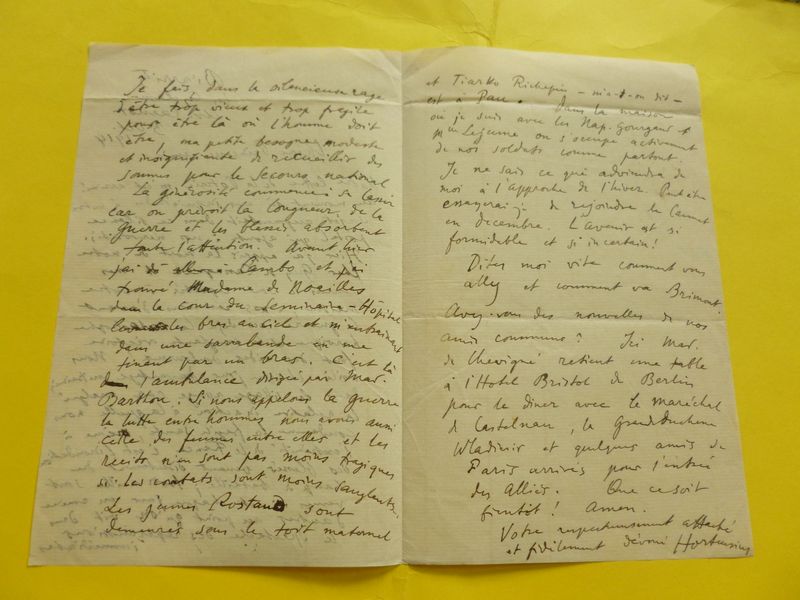 Je fais, dans la silencieuse rage
d'être trop vieux et trop fragile
pour être là où l'homme doit
être, ma petite besogne modeste
et insignifiante de recueillir des
sommes pour le Secours national
La générosité commence à se lasser
car on prévoit la longueur de la
guerre et les blessés absorbent
toute l'attention. Avant hier
j'ai été à Cambo et j'ai
trouvé Madame de Noailles
dans la cour du Seminaire-Hôpital
les bras au ciel et m'entrainant
dans une sarabande en me
tenant par un bras. C'est là
l'ambulance dirigée par Mad.
Barthou. Si nous appelons la guerre
la lutte entre hommes nous avons aussi
celle des femmes entre elles et les
recits n'en sont pas moins tragiques
si les combats sont moins sanglants.
Les jeunes Rostand sont
demeurés sous le toit maternel
et Tiarko Richepin - m'a-t-on dit -
est à Pau. Dans la maison
où je suis avec les Nap. Gourgaud et
Mme Lejeune on s'occupe activement
de nos soldats comme partout.
Je ne sais ce qui adviendra de
moi à l'approche de l'hiver. Peut être
essayerai-je de rejoindre le Cannet
en decembre. L'avenir est si
formidable et si incertain!
Dites moi vite comment vous
allez et comment va Brimont.
Avez-vous des nouvelles de vos
amis communs? Ici Mad.
de Chevigné retient une table
à l'Hotel Bristol de Berlin
pour le diner avec le maréchal
de Castelnau, la Grande Duchesse
Wladimir et quelques amis de
Paris arrivés pour l'entrée
des Alliés. Que ce soit
bientôt! Amen.
Votre respectueusement attaché
et fidèlement dévoué